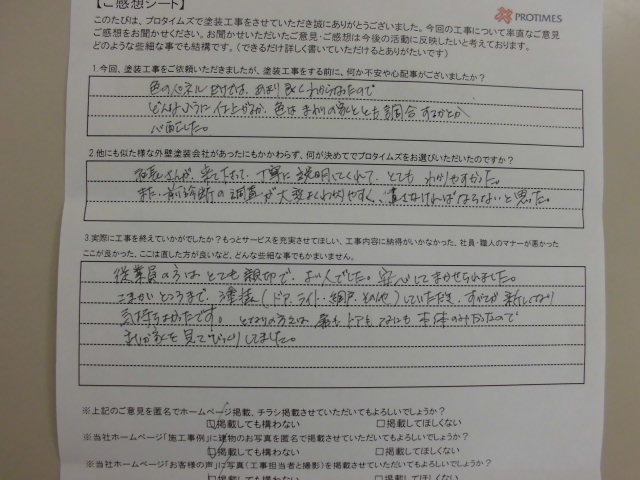 【ご感想シート】
PROTIMES
このたびは、プロタイムズで塗装工事をさせていただき誠にありがとうございました。今回の工事について率直なご意見
ご感想をお聞かせください。お聞かせいただいたご意見・ご感想は今後の活動に反映したいと考えております。
どのような些細な事でも結構です。(できるだけ詳しく書いていただけるとありがたいです)
1.今回、塗装工事をご依頼いただきましたが、塗装工事をする前に、何か不安や心配事がございましたか?
色のパネルだけでは、あまりよくわからなかったので
どんなふうに仕上がるか、色はまわりの家とも調合するかとか
心配でした。
2.他にも似た様な外壁塗装会社があったにもかかわらず、何が決めてでプロタイムズをお選びいただいたのですか?
さんが、来て下さって、丁寧に説明してくれて、とても わかりやすかった。
また、前診断の調査が大変よくわかりやすく、直さなければならないと思った。
3.実際に工事を終えていかがでしたか?もっとサービスを充実させてほしい、工事内容に納得がいかなかった。社員・職人のマナーが悪かった
ここが良かった、ここは直した方が良いなど、どんな些細な事でもかまいません。
従業員の方は とても親切で、よい人でした。安心してまかせられました。
こまかいところまで、塗装(ドア、ライト・網戸、その他)していただき、すべてが新しくなり
気持ちよかったです。となりの方は、ドアも なにも 本体のみだったので
家を見てびっくりしてました。
※上記のご意見を匿名でホームページ掲載、チラシ掲載させていただいてもよろしいでしょうか?
☑掲載しても構わない □掲載してほしくない
※当社ホームページ「施工事例」に建物のお写真を匿名で掲載させていただいてもよろしいでしょうか?
☑掲載しても構わない □掲載してほしくない
※当社ホームページ「お客様の声」に写真(工事担当者と撮影)を掲載させていただいてもよろしいでしょうか?
掲載しても構わない □掲載してほしくない